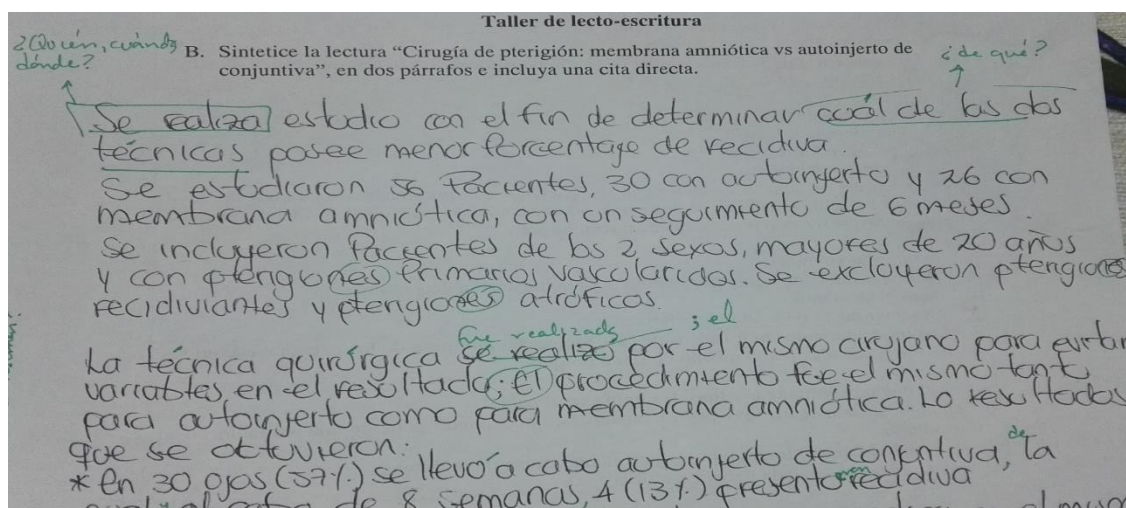 Taller de lecto-escritura
¿Quién, cuándo
dónde?
B. Sintetice la lectura “Cirugía de pterigión: membrana amniótica vs autoinjerto de
conjuntiva”, en dos párrafos e incluya una cita directa.
¿de qué?
Se realiza estudio con el fin de determinar cuál de las dos
técnicas posee menor porcentage de recidiva.
Se estudiaron 56 Pacientes, 30 con autoinjerto y 26 con
membrana amniótica, con un seguimiento de 6 meses.
Se incluyeron Pacientes de los 2 sexos, mayores de 20 años
y con pterigiones Primarios vascularidos. Se excluyeron pterigiones
recidiviantes y pterigiones atróficos.
fue realizado ; el
La técnica quirúrgica se realizo por el mismo cirujano para evitar
variables, en el resultado; El procedimiento fue el mismo tanto
para autoinjerto como para membrana amniótica. Lo resultados
que se obtuvieron:
de
* En 30 ojos (57%) se llevó a cabo autoinjerto de conjuntiva, la
de 8 semanas, 4 (13%) presento recidiva